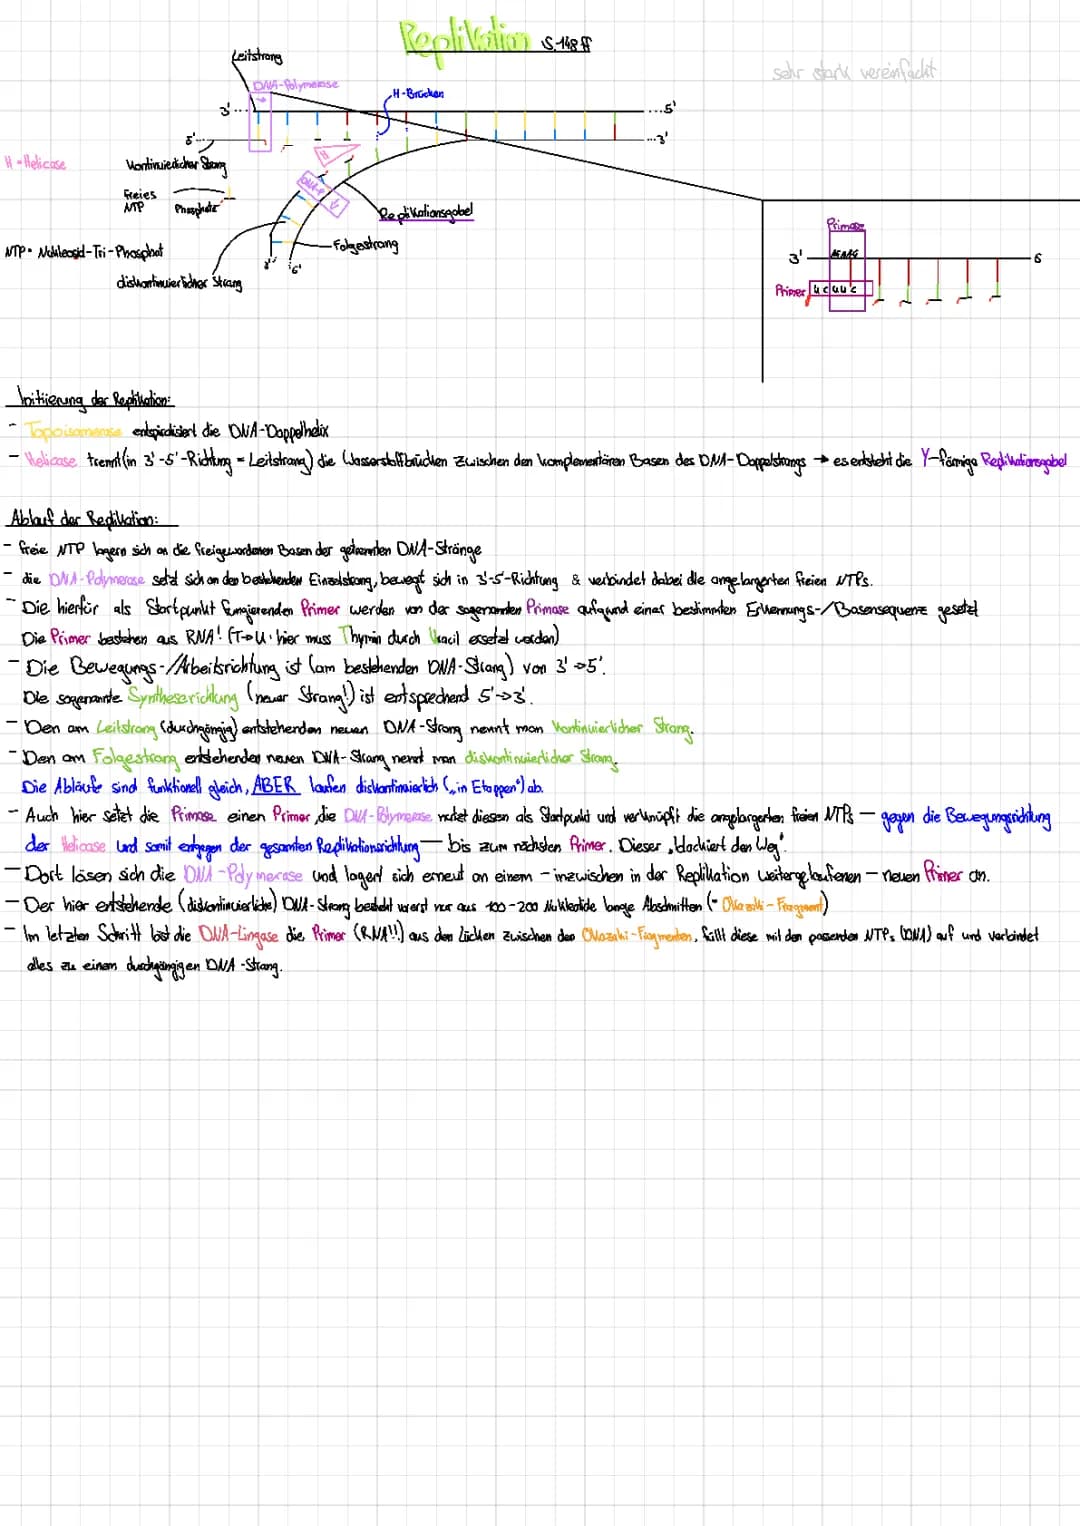 Replikation S. 148 ff
sehr stark vereinfacht
Leitstrang
DNA-Polymerase
H-Brücken
3'...
...5'
5'...
...3'
H = Helicase
kontinuierlicher Strang
H
freies NTP
Phosphate
DNA-P
Replikationsgabel
NTP = Nukleosid-Tri-Phosphat
Folgestrang
diskontinuierlicher Strang
3'
5'
Primase
3'
5
Primer
U C U U C
Initiierung der Replikation:
- Topoisomerase entspiralisiert die DNA-Doppelhelix
- Helicase trennt (in 3'-5'-Richtung = Leitstrang) die Wasserstoffbrücken zwischen den komplementären Basen des DNA-Doppelstrangs → es entsteht die Y-förmige Replikationsgabel
Ablauf der Replikation:
- freie NTP lagern sich an die freigewordenen Basen der getrennten DNA-Stränge
- die DNA-Polymerase setzt sich an den bestehenden Einzelstrang, bewegt sich in 3'-5'-Richtung & verbindet dabei die angelargerten freien NTPs.
- Die hierfür als Startpunkt fungierenden Primer werden von der sogenannten Primase aufgrund einer bestimmten Erkennungs-/Basensequenz gesetzt
Die Primer bestehen aus RNA! (T→U: hier muss Thymin durch Uracil ersetzt werden)
- Die Bewegungs-/Arbeitsrichtung ist (am bestehenden DNA-Strang) von 3'→5'.
Die sogenannte Syntheserichtung (neuer Strang!) ist entsprechend 5'→3'.
- Den am Leitstrang (durchgängig) entstehenden neuen DNA-Strang nennt man kontinuierlicher Strang.
- Den am Folgestrang entstehenden neuen DNA-Strang nennt man diskontinuierlicher Strang.
Die Abläufe sind funktionell gleich, ABER laufen diskontinuierlich („in Etappen") ab.
- Auch hier setzt die Primase einen Primer, die DNA-Polymerase nutzt diesen als Startpunkt und verknüpft die angelargerten freien NTPs — gegen die Bewegungsrichtung
der Helicase und somit entgegen der gesamten Replikationsrichtung — bis zum nächsten Primer. Dieser „blockiert den Weg".
- Dort lösen sich die DNA-Polymerase und lagert sich erneut an einem - inzwischen in der Replikation weitergelaufenen - neuen Primer an.
- Der hier entstehende (diskontinuierliche) DNA-Strang besteht vorerst nur aus 100-200 Nukleotide lange Abschnitten (= Okazaki-Fragment)
- Im letzten Schritt löst die DNA-Lingase die Primer (RNA!!) aus den Lücken zwischen den Okazaki-Fragmenten, füllt diese mit den passenden NTPs (DNA) auf und verbindet
alles zu einem durchgängigen DNA-Strang.